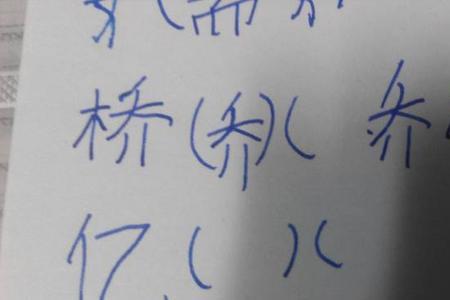 桥(乔)( 乔
亿( )(